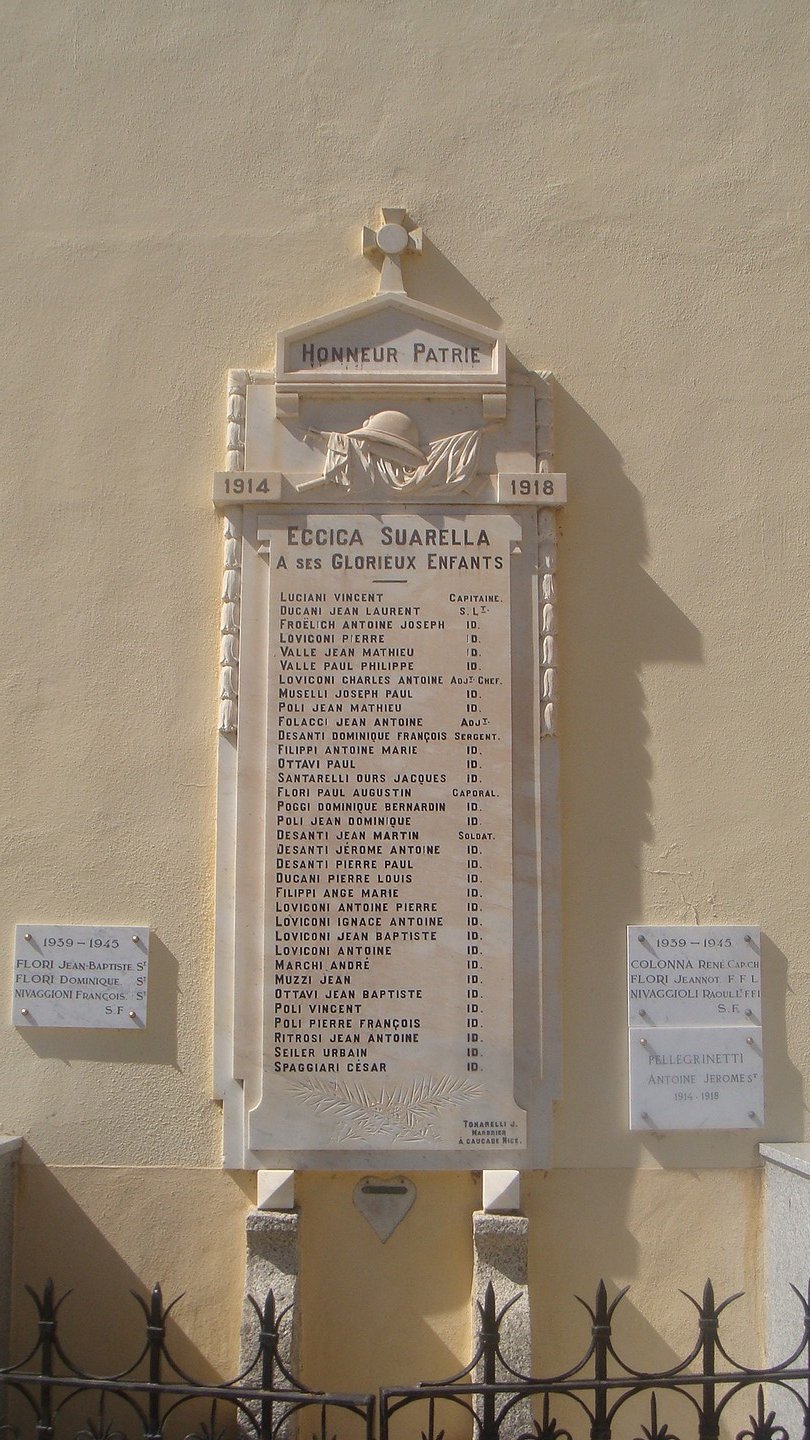 HONNEUR PATRIE
1914 1918
ECCICA SUARELLA
A SES GLORIEUX ENFANTS
LUCIANI VINCENT CAPITAINE.
DUCANI JEAN LAURENT S. LT.
FROËLICH ANTOINE JOSEPH ID.
LOVICONI PIERRE ID.
VALLE JEAN MATHIEU ID.
VALLE PAUL PHILIPPE ID.
LOVICONI CHARLES ANTOINE ADJT CHEF.
MUSELLI JOSEPH PAUL ID.
POLI JEAN MATHIEU ID.
FOLACCI JEAN ANTOINE ADJT.
DESANTI DOMINIQUE FRANÇOIS SERGENT.
FILIPPI ANTOINE MARIE ID.
OTTAVI PAUL ID.
SANTARELLI OURS JACQUES ID.
FLORI PAUL AUGUSTIN CAPORAL.
POGGI DOMINIQUE BERNARDIN ID.
POLI JEAN DOMINIQUE ID.
DESANTI JEAN MARTIN SOLDAT.
DESANTI JÉROME ANTOINE ID.
DESANTI PIERRE PAUL ID.
DUCANI PIERRE LOUIS ID.
FILIPPI ANGE MARIE ID.
LOVICONI ANTOINE PIERRE ID.
LOVICONI IGNACE ANTOINE ID.
LOVICONI JEAN BAPTISTE ID.
LOVICONI ANTOINE ID.
MARCHI ANDRÉ ID.
MUZZI JEAN ID.
OTTAVI JEAN BAPTISTE ID.
POLI VINCENT ID.
POLI PIERRE FRANÇOIS ID.
RITROSI JEAN ANTOINE ID.
SEILER URBAIN ID.
SPAGGIARI CÉSAR ID.
TONARELLI J.
MARBRIER
À CAUCADE NICE.
1939–1945
FLORI JEAN-BAPTISTE ST
FLORI DOMINIQUE ST
NIVAGGIONI FRANÇOIS ST
S.F
1939–1945
COLONNA RENÉ CAP.CH
FLORI JEANNOT F F L
NIVAGGIOLI RAOUL LT FFI
S.F.
PELLEGRINETTI
ANTOINE JEROME ST
1914-1918